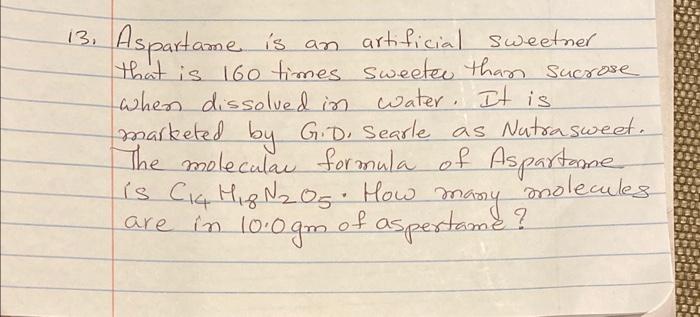 13. Aspartame is an artificial sweetner
that is 160 times sweeter than sucrose
when dissolved in water. It is
marketed by G.D. Searle as Nutrasweet.
The molecular formula of Aspartame
is C14 H18 N2 O5. How many molecules
are in 10.0 gm of aspertame?